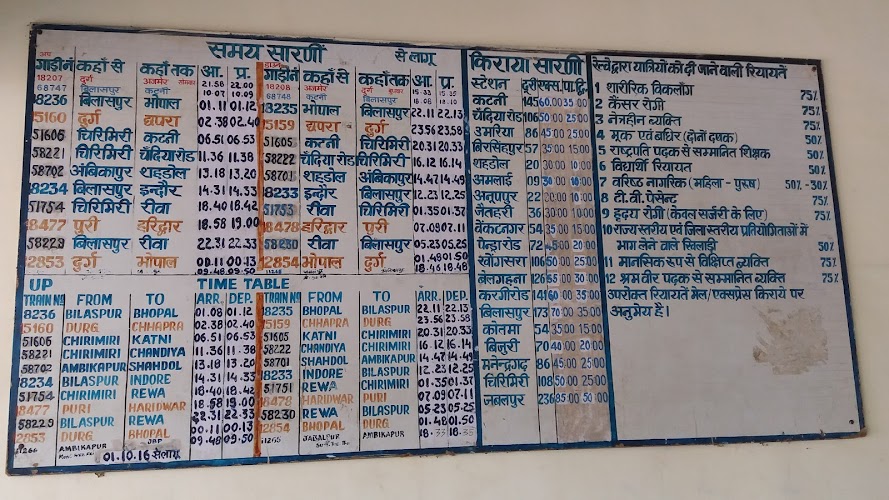 समय सारणी से लागू
अप
गाडी नं कहाँ से कहाँ तक आ. प्र.
18207 दुर्ग अजमेर 21.56 22.00
68747 बिलासपुर कटनी 10.07 10.09
8236 बिलासपुर भोपाल 01.11 01.12
5160 दुर्ग छपरा 02.38 02.40
51605 चिरिमिरी कटनी 06.51 06.53
58221 चिरिमिरी चंदियारोड 11.36 11.38
58702 अंबिकापुर शहडोल 13.18 13.20
8234 बिलासपुर इन्दौर 14.31 14.33
51754 चिरिमिरी रीवा 18.40 18.42
8477 पुरी हरिद्वार 18.58 19.00
58229 बिलासपुर रीवा 22.31 22.33
2853 दुर्ग भोपाल 00.11 00.13
09.48 09.50
डाउन
गाडी नं कहाँ से कहाँ तक आ. प्र.
18208 अजमेर दुर्ग
68748 कटनी बिलासपुर 18.08 18.10
18235 भोपाल बिलासपुर 22.11 22.13
15159 छपरा दुर्ग 23.56 23.58
51605 कटनी चिरिमिरी 20.31 20.33
58222 चंदिया रोड चिरिमिरी 16.12 16.14
58701 शहडोल अंबिकापुर 14.47 14.49
18233 इन्दौर बिलासपुर 12.23 12.25
51753 रीवा चिरिमिरी 01.35 01.37
18478 हरिद्वार पुरी 07.09 07.11
58230 रीवा बिलासपुर 05.23 05.25
12854 भोपाल दुर्ग 01.48 01.50
18.46 18.48
UP TIME TABLE
TRAIN Nº FROM TO ARR. DEP.
8236 BILASPUR BHOPAL 01.08 01.12
5160 DURG CHHAPRA 02.38 02.40
51605 CHIRIMIRI KATNI 06.51 06.53
58221 CHIRIMIRI CHANDIYA 11.36 11.38
58702 AMBIKAPUR SHAHDOL 13.18 13.20
8234 BILASPUR INDORE 14.31 14.33
51754 CHIRIMIRI REWA 18.40 18.42
8477 PURI HARIDWAR 18.58 19.00
58229 BILASPUR REWA 22.31 22.33
2853 DURG BHOPAL 00.11 00.13
11266 AMBIKAPUR JBP 09.48 09.50
01.10.16 से लागू
TRAIN Nº FROM TO ARR. DEP.
18235 BHOPAL BILASPUR 22.11 22.13
15159 CHHAPRA DURG 23.56 23.58
51605 KATNI CHIRIMIRI 20.31 20.33
58222 CHANDIYA CHIRIMIRI 16.12 16.14
58701 SHAHDOL AMBIKAPUR 14.47 14.49
18233 INDORE BILASPUR 12.23 12.25
51751 REWA CHIRIMIRI 01.35 01.37
18478 HARIDWAR PURI 07.09 07.11
58230 REWA BILASPUR 05.23 05.25
12854 BHOPAL DURG 01.48 01.50
11265 JABALPUR AMBIKAPUR
किराया सारणी
स्टेशन दूरी एक्स. पा.
कटनी 145 60.00 35.00
चंदियारोड 106 50.00 25.00
उमरिया 86 45.00 25.00
बिरसिंहपुर 57 35.00 15.00
शहडोल 20 30.00 10.00
अमलाई 09 30.00 10.00
अनूपपुर 22 30.00 10.00
जैतहरी 36 30.00 10.00
वेंकटनगर 54 35.00 15.00
पेन्ड्रारोड 72 45.00 20.00
खोंगसरा 106 50.00 25.00
बेलगहना 126 55.00 30.00
करगीरोड 141 60.00 35.00
बिलासपुर 173 70.00 35.00
कोतमा 54 35.00 15.00
बिजुरी 70 40.00 20.00
मनेन्द्रगढ़ 86 45.00 25.00
चिरिमिरी 108 50.00 25.00
जबलपुर 236 85.00 50.00
रेल्वे द्वारा यात्रियों को दी जाने वाली रियायतें
1 शारीरिक विकलाँग 75%
2 कैंसर रोगी 75%
3 नेत्रहीन व्यक्ति 75%
4 मूक एवं बधिर (दोनों दशक) 50%
5 राष्ट्रपति पदक से सम्मानित शिक्षक 50%
6 विद्यार्थी रियायत 50%
7 वरिष्ठ नागरिक (महिला - पुरूष) 50% - 30%
8 टी.वी. पेसेन्ट 75%
9 हृदय रोगी (केवल सर्जरी के लिए) 75%
10 राज्य स्तरीय एवं जिला स्तरीय प्रतियोगिताओं में
भाग लेने वाले खिलाड़ी 50%
11 मानसिक रूप से विक्षिप्त व्यक्ति 75%
12 श्रमवीर पदक से सम्मानित व्यक्ति 75%
उपरोक्त रियायतें मेल/एक्सप्रेस किराये पर
अनुमेय है।